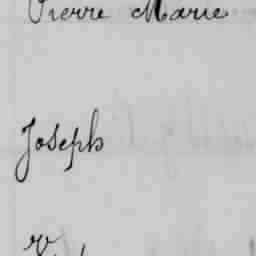 Pierre Marie
Joseph